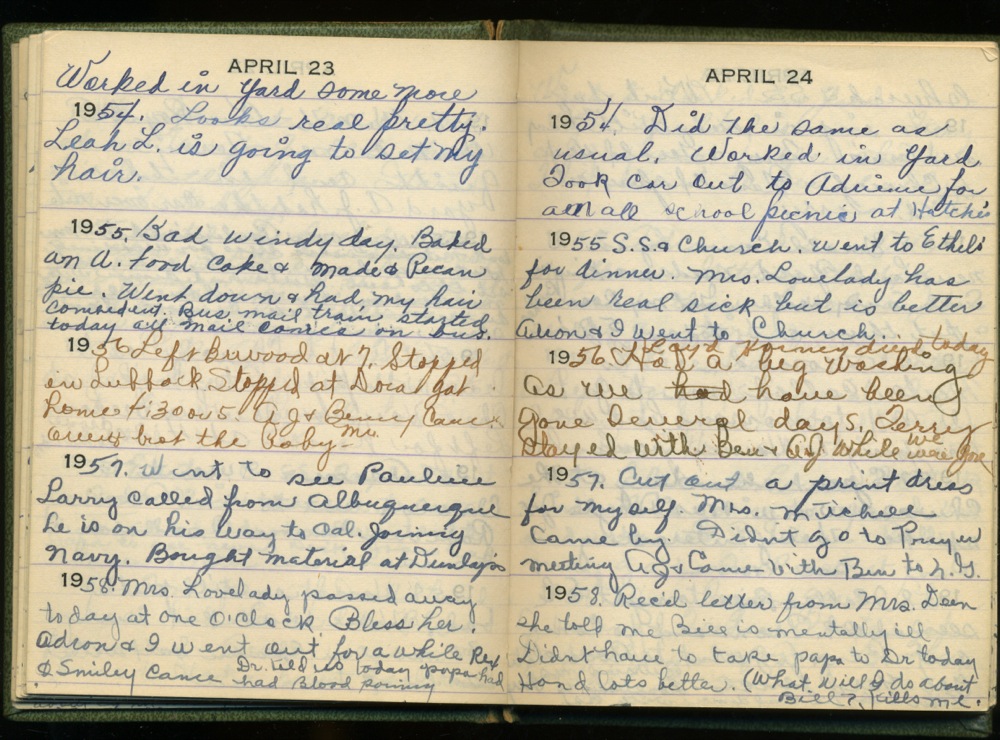 APRIL 23
Worked in yard some more
1954. Looks real pretty.
Leah L. is going to set my
hair.
1955. Bad windy day. Baked
an A. Food Cake & made Pecan
pie. Went down & had my hair
Bus mail train started
today all mail comes on bus.
1956 Left at 7. Stopped
in Lubbock. Stopped at Dora got
home 4:30 or 5. A J & Benny Came
over & brot the Baby
1957. Went to see Pauline
Larry called from Albuquerque
he is on his way to Cal. Joining
Navy. Bought material at Dunlap's
1958. Mrs. Lovelady passed away
today at one O'clock. Bless her.
Adron & I went out for a while Rex
& Smiley Came Dr. told us today papa had
had Blood poisoning
APRIL 24
1954. Did the same as
usual. Worked in Yard
Took car out to Adriene for
all school picnic at
1955 S.S. & Church. Went to Ethel's
for dinner. Mrs. Lovelady has
been real sick but is better
Adron & I went to Church.
died today
1956. Had a big washing
as we had have been
gone several days. Terry
stayed with Ben & AJ while we were gone
1957. Cut out a print dress
for myself. Mrs. Mitchell
Came by. Didn't go to Prayer
meeting AJ & Came with Ben to
1958. Rec'd letter from Mrs. Dean
she told me Bill is mentally ill
Didnt have to take papa to Dr today
Hand lots better. (What will I do about
Bill?, Kills me.